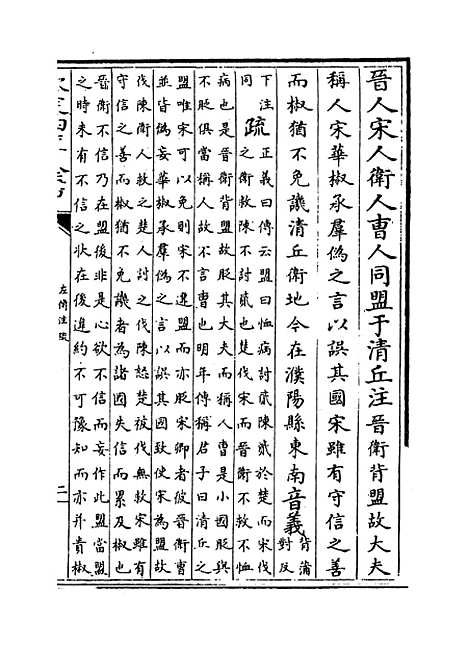 晉人宋人衛人曹人同盟于清丘注晉衛背盟故大夫
稱人宋華椒承羣偽之言以誤其國宋雖有守信之善
而椒猶不免譏清丘衛地今在濮陽縣東南音義背蒲
對反
下注
同
疏正義曰傳云盟曰恤病討貳陳貳於楚而宋伐
之衛救陳不討貳也楚伐宋而晉衛不救不恤
病也是晉衛背盟故貶其大夫而稱人曹是小國貶與
不貶俱當稱人故不言曹也明年傳稱君子曰清丘之
盟唯宋可以免則宋不違盟而亦貶宋卿者彼晉衛曹
並皆偽妄華椒承羣偽之言以誤其國致使宋為盟故
伐陳衛人救之楚人討之伐陳怒楚被伐無救宋雖有
守信之善而椒猶不免譏者為諸國失信而累及椒也
晉衛不信乃在盟後非是心欲不信而妄作此盟當盟
之時未有不信之狀在後違約不可豫知而亦并責椒
左傳注疏